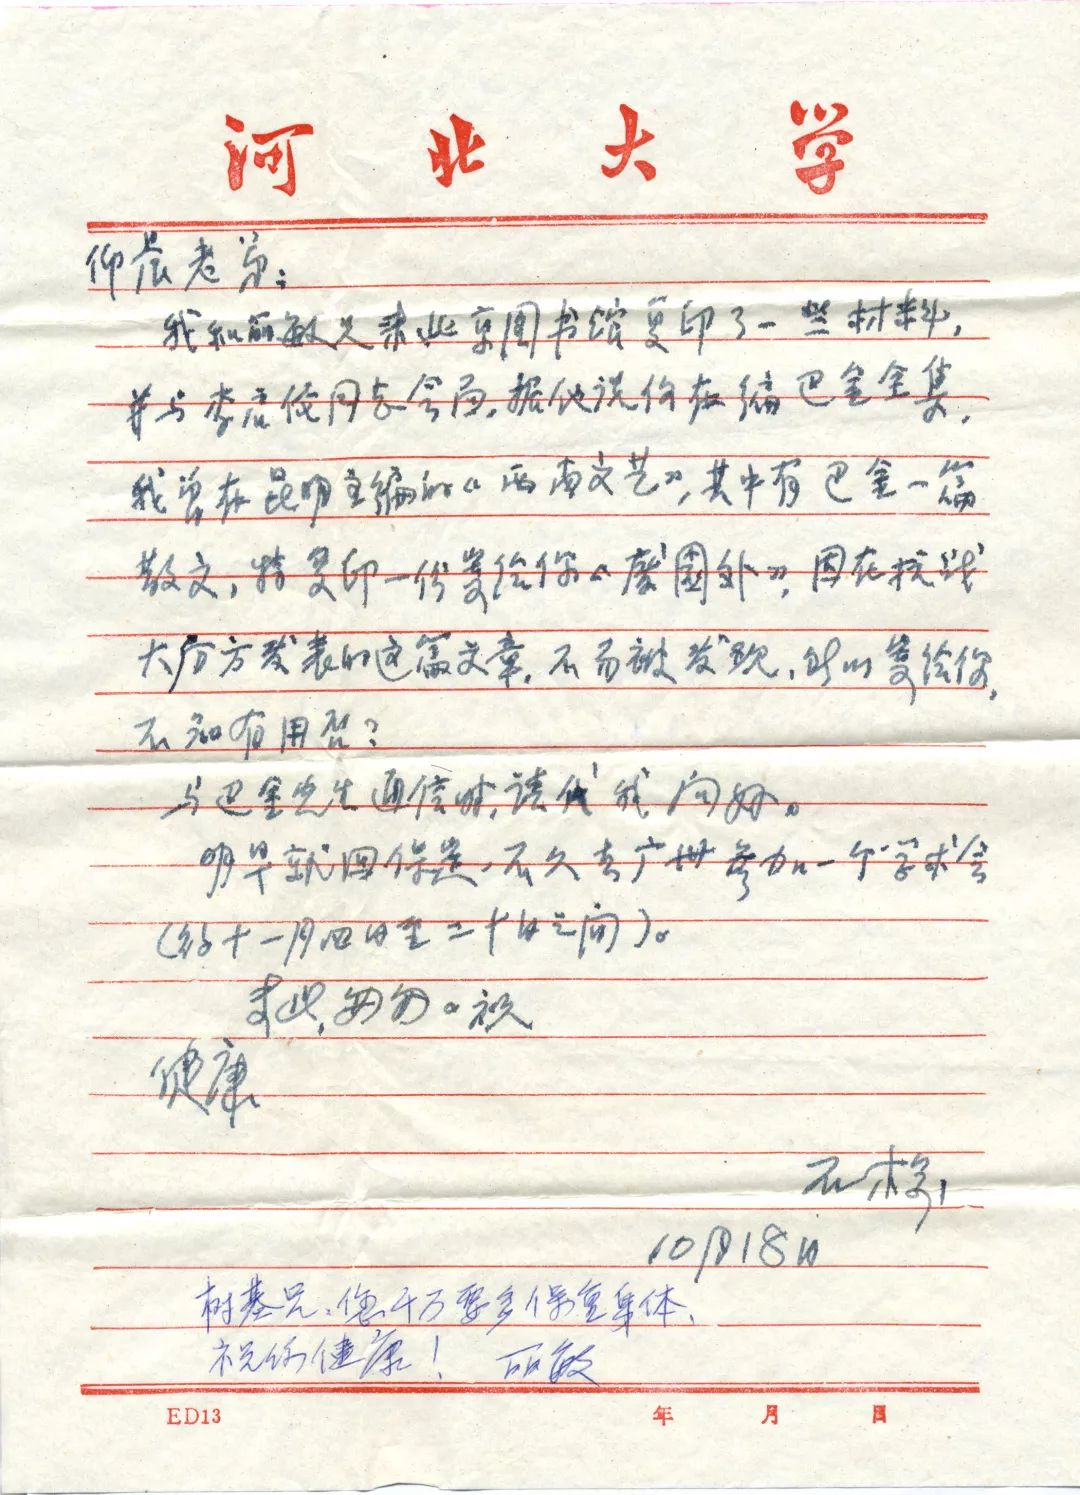 河北大学
仰晨老弟：
我和丽敏只来北京图书馆复印了一些材料，
并与李启伦同志会面，据他说你在编巴金全集，
我曾在昆明主编的《西南文艺》，其中有巴金一篇
散文，特复印一份寄给你《废园外》，因在抗战
大后方发表的这篇文章，不易被发现，所以寄给你，
不知有用否？
与巴金先生通信时，请代我问好。
明早就回保定，不久去广州参加一个学术会
（约十一月四日至二十日之间）。
专此，匆匆。祝
健康
10月18日
树基兄：您千万要多保重身体，
祝你健康！ 丽敏
ED13 年 月 日